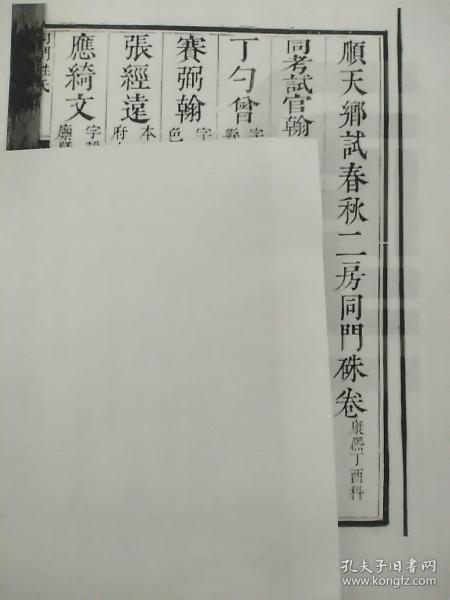 順天鄉試春秋二房同門硃卷康熙丁酉科
同考試官翰
丁勻曾
賽弼翰
張經遠
應綺文
孔夫子旧书网
www.kongfz.com